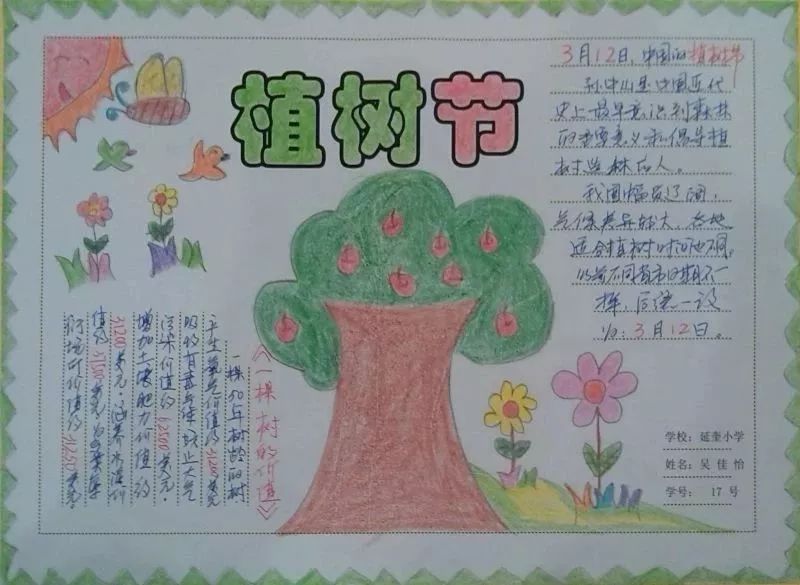 植树节
3月12日，中国的植树节
孙中山是中国近代
史上最早意识到森林
的重要意义和倡导植
树造林的人。
我国幅员辽阔，
气候差异较大，各地
适合植树时间也不同。
以前不同省市日期不一
样，后统一设
为：3月12日。
《一棵树的价值》
一棵50年树龄的树
产生氧气价值约31200美元
吸收有毒气体防止大气
污染价值约62500美元.
增加土壤肥力价值约
31200美元.涵养水源价
值约37500美元.
学校：延奎小学
姓名：吴佳怡
学号： 17号